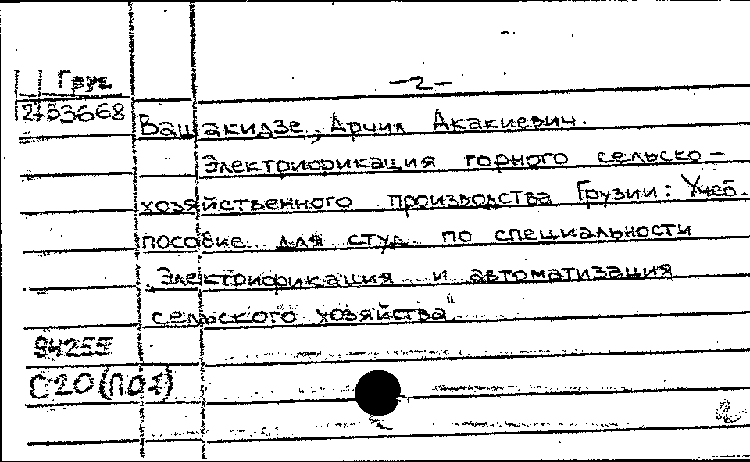 Груз
-2-
2153668
Вашакидзе, Арчил Акакиевич.
Электрификация горного сельско-
хозяйственного производства Грузии: Учеб.
пособие для студ. по специальности
Электрификация и автоматизация
сельского хозяйства"
94255
С20(П01)